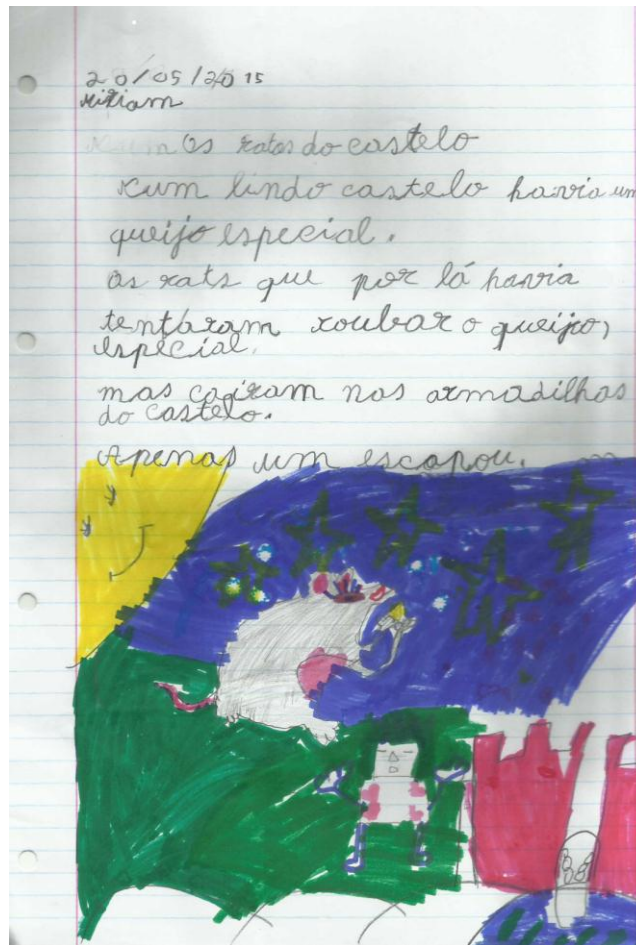 20/05/2015
Miriam
Os ratos do castelo
Num lindo castelo havia um
queijo especial.
Os rats que por lá havia
tentaram roubar o queijo,
especial.
mas cairam nas armadilhas
do castelo.
Apenas um escapou.